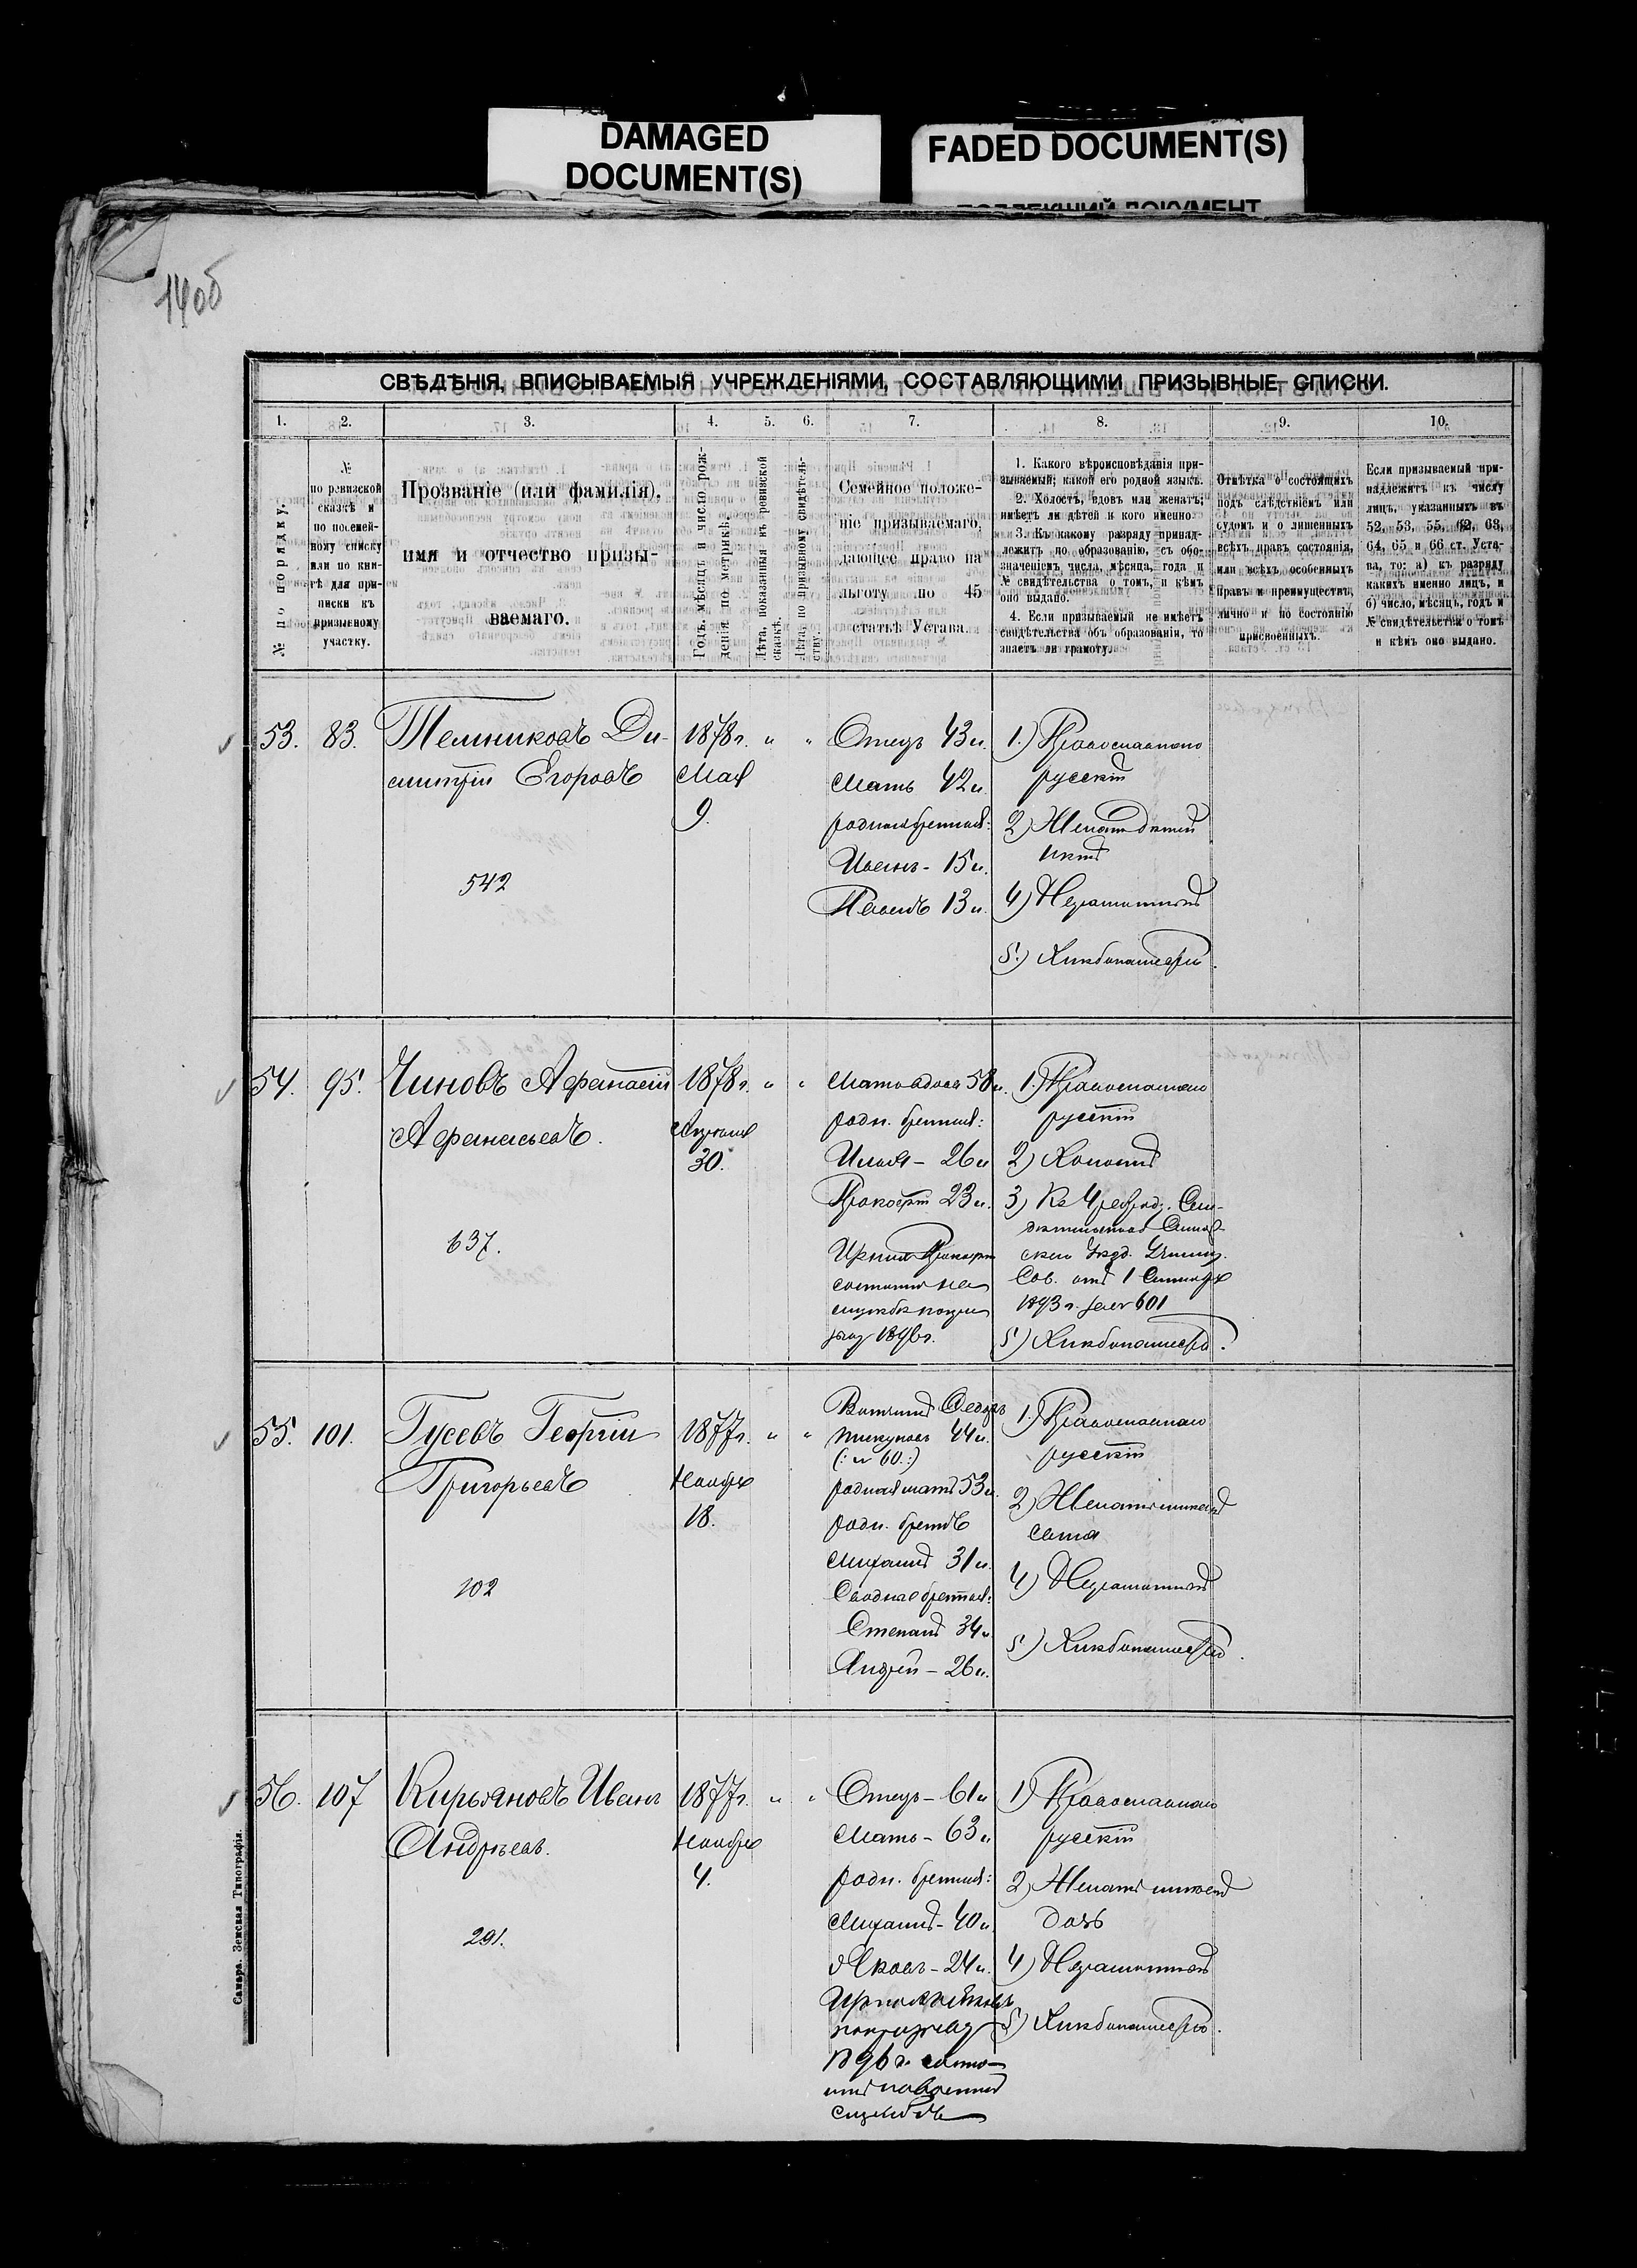 DAMAGED
DOCUMENT(S)
FADED DOCUMENT(S)
140об
СВѢДѢНІЯ, ВПИСЫВАЕМЫЯ УЧРЕЖДЕНІЯМИ, СОСТАВЛЯЮЩИМИ ПРИЗЫВНЫЕ СПИСКИ.
1. 2. 3. 4. 5. 6. 7. 8. 9. 10.
№ по порядку.
№
по ревизской
сказкѣ и
по посемей-
ному списку
или по кни-
гѣ для при-
писки къ
призывному
участку.
Прозваніе (или фамилія),
имя и отчество призы-
ваемаго.
Годъ, мѣсяцъ и число рож-
денія по метрикѣ.
Лѣта, показанныя въ ревизской
сказкѣ.
Лѣта, по призывному свидѣтель-
ству.
Семейное положе-
ніе призываемаго,
дающее право на
льготу по 45
статьѣ Устава.
1. Какого вѣроисповѣданія при-
зываемый; какой его родной языкъ.
2. Холостъ, вдовъ или женатъ;
имѣетъ ли дѣтей и кого именно.
3. Къ какому разряду принад-
лежитъ по образованію, съ обо-
значеніемъ числа, мѣсяца, года и
№ свидѣтельства о томъ, и кѣмъ
оно выдано.
4. Если призываемый не имѣетъ
свидѣтельства объ образованіи, то
знаетъ ли грамоту.
Отмѣтка о состоящихъ
подъ слѣдствіемъ или
судомъ и о лишенныхъ
всѣхъ правъ состоянія,
или всѣхъ особенныхъ
правъ и преимуществъ,
лично и по состоянію
присвоенныхъ.
Если призываемый при-
надлежитъ къ числу
лицъ, указанныхъ въ
52, 53, 55, 62, 63,
64, 65 и 66 ст. Уста-
ва, то: а) къ разряду
какихъ именно лицъ, и
б) число, мѣсяцъ, годъ и
№ свидѣтельства о томъ
и кѣмъ оно выдано.
53. 83. Темниковъ Ди-
митрій Егоровъ
542
1878 г. " "
Мая
9.
Отецъ 43 л.
Мать 42 л.
родные братья:
Иванъ - 15 л.
Павелъ 13 л.
1.) Православнаго
русскій
2) Женатъ дѣтей
нѣтъ
4) Неграмотный
5.) Хлѣбопашество.
54. 95. Чиновъ Афанасій
Афанасьевъ.
637.
1878 г. " "
Апрѣля
30.
Мать вдова 58 л.
родн. братья:
Илья - 26 л
Прокофій 23 л.
состоитъ на
1896 г.
1.) Православнаго
русскій
2) Холостъ
3) Къ 4 разряду. Сви-
дѣтельство
Сов. отъ 1 Сентября
1893 г. за № 601
5) Хлѣбопашество.
55. 101. Гусевъ Георгій
Григорьевъ
102
1877 г. " "
Ноября
18.
Вотчимъ Федоръ
44 л.
(: № 60 :)
родная мать 53 л.
родн. братъ
Михаилъ 31 л.
Сводные братья:
Степанъ 34 л
Андрей - 26 л.
1.) Православнаго
русскій
2) Женатъ имѣетъ
сына
4) Неграмотный
5) Хлѣбопашество.
56. 107 Кирьяновъ Иванъ
Андрѣевъ.
291.
1877 г. " "
Ноября
4.
Отецъ - 61 л
Мать - 63 л
родн. братья:
Михаилъ - 40 л
Яковъ - 24 л.
1896 г. состо-
итъ на военной
службѣ
1) Православнаго
русскій
2) Женатъ имѣетъ
дочь
4) Неграмотный
5) Хлѣбопашество.
Самара. Земская Типографія.